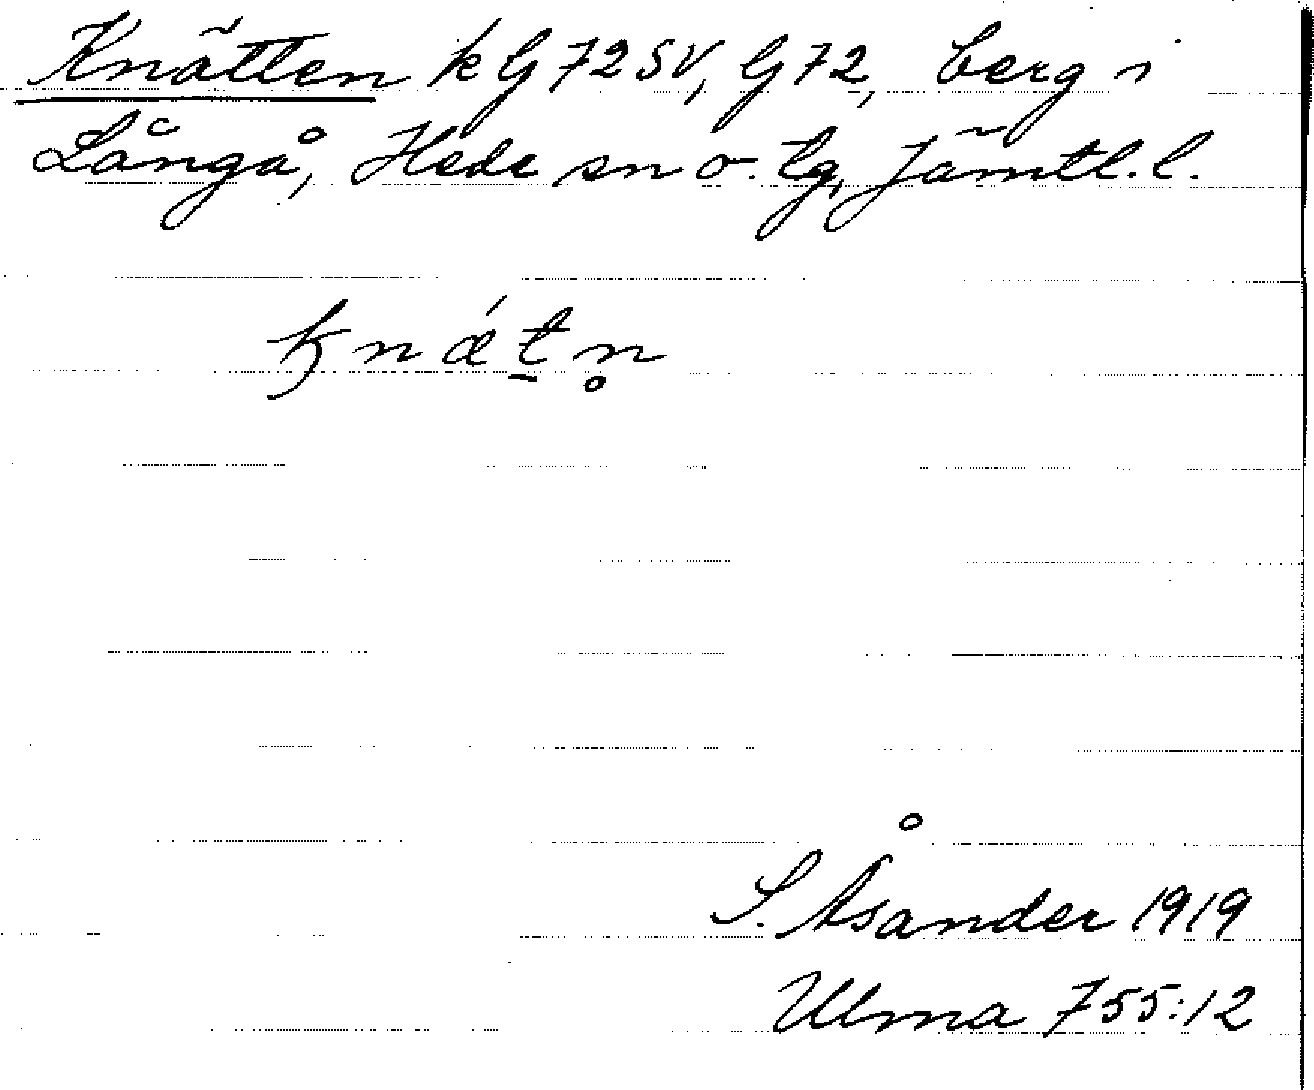 Knätten k G 72 SV, G 72, berg i
Långå, Hede sn o. tg, Jämtl. l.
knǽt̠n̥
S. Åsander 1919
Ulma 755:12